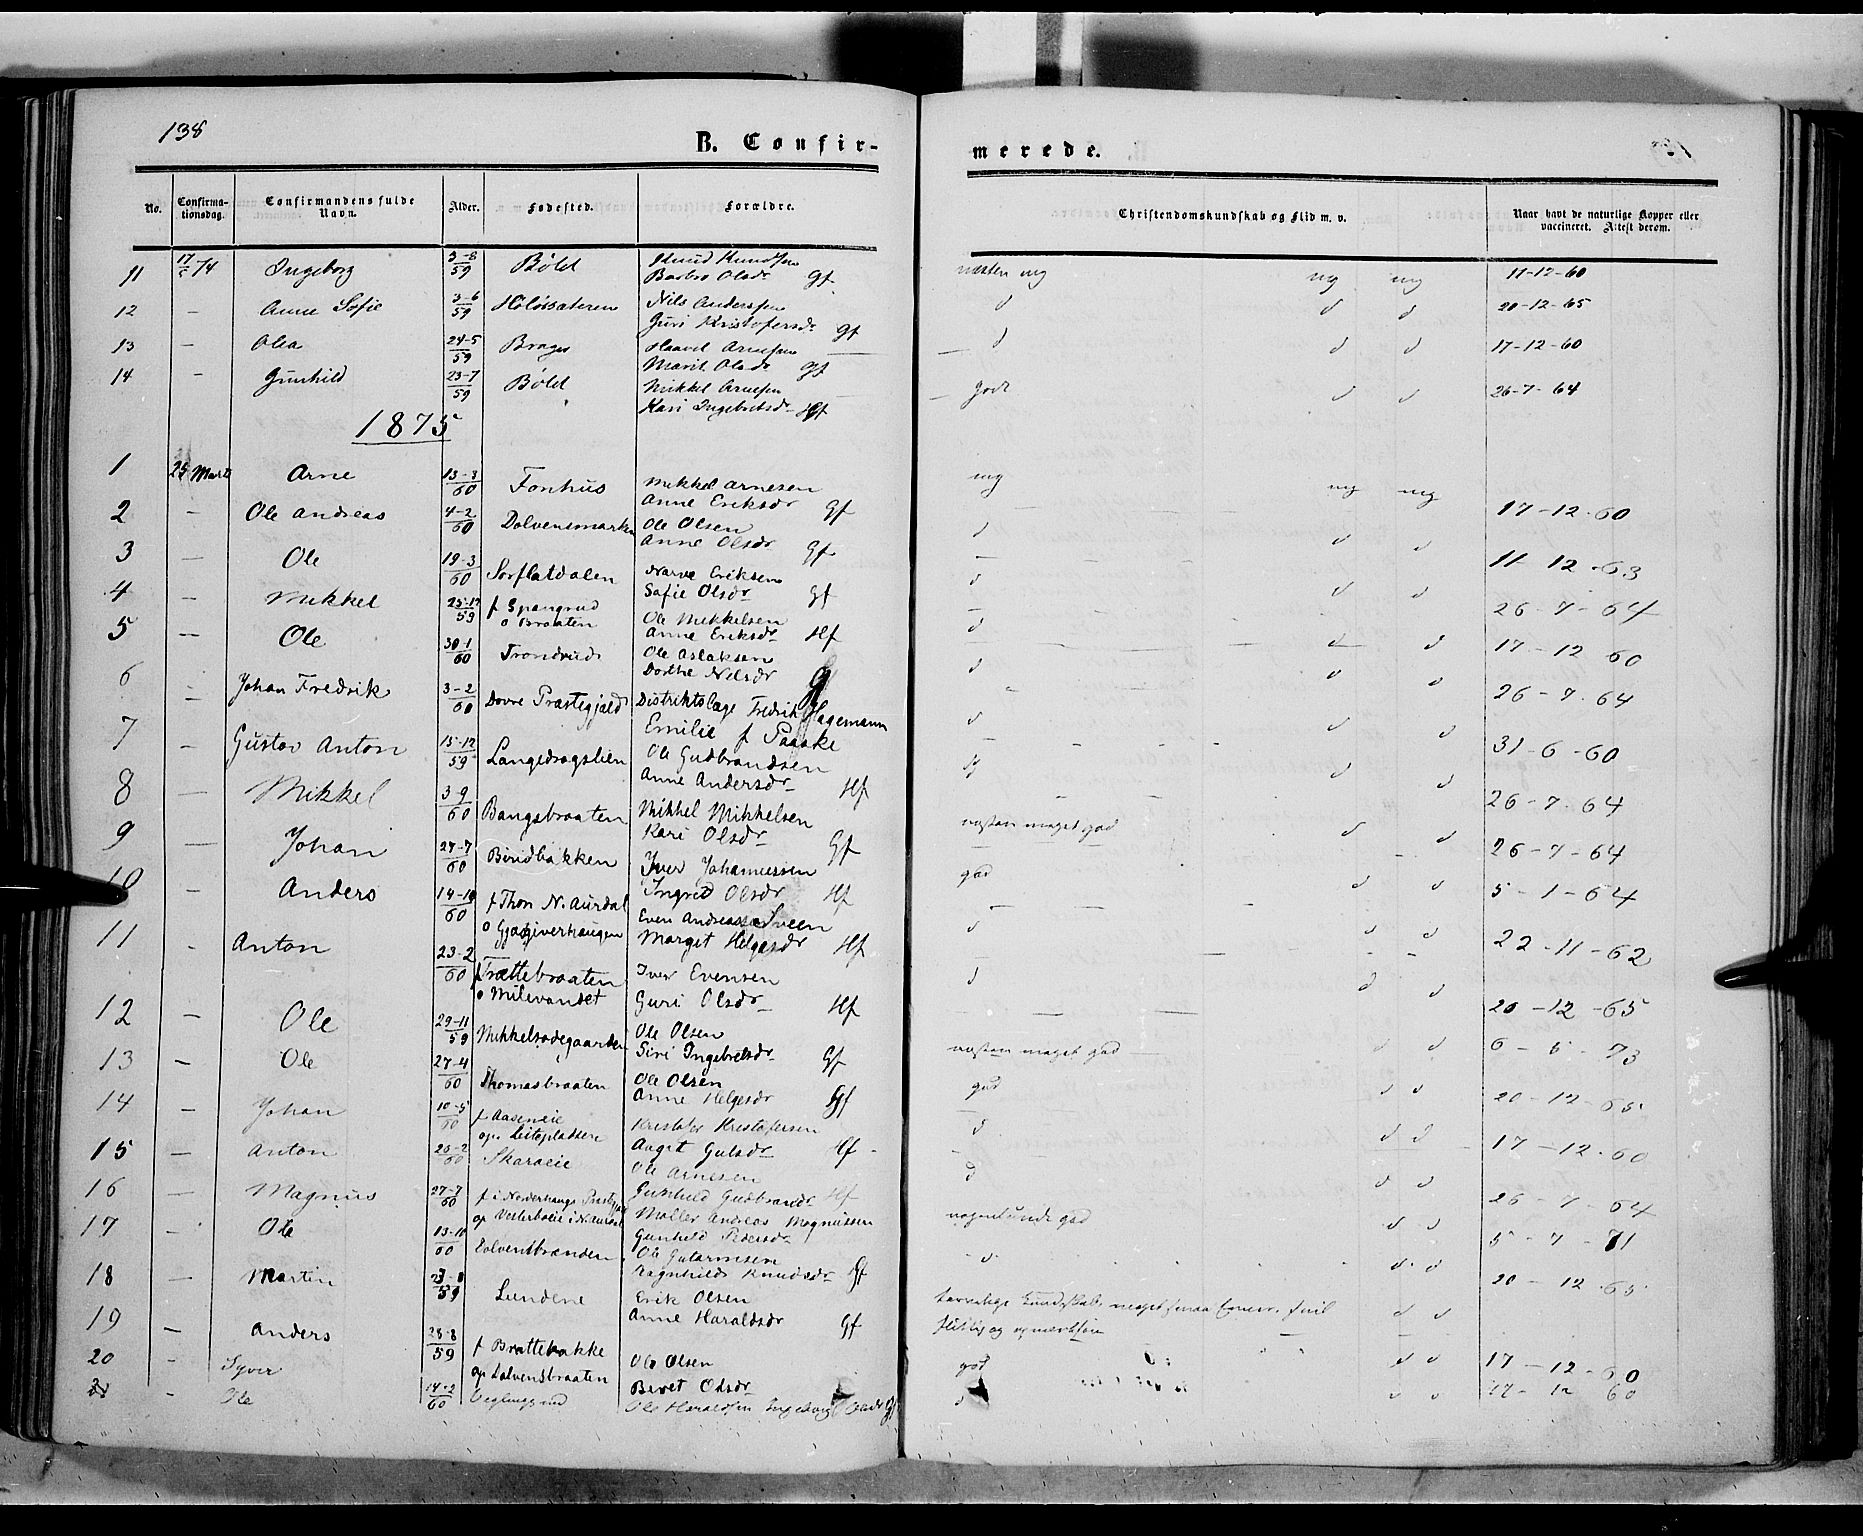 138
B. Confir-
merede.
No. Confirma-tionsdag. Confirmandens fulde Navn. Alder. Fødested. Forældre. Christendomskundskab og Flid m. v. Naar havt de naturlige Kopper eller vaccineret. Attest derom.
11 17/5 74 Ingeborg 3-8/59 Bølet Knud Knudsen næsten mg mg mg 17-12-60
Barbro Olsdr Gf
12 – Anne Sofie 3-6/59 Nils Anderssen d d d 20-12-65
Guri Kristofersdr Gf
13 – Olea 24-5/59 Brager Haavel Arnesen d d d 17-12-60
Marit Olsdr Gf
14 – Gunhild 23-7/59 Bølet Mikkel Arnesen godt d d 26-7-64
Kari Ingebretsdr Hf
1875
1 25 Marts Arne 13-3/60 Fonhus Mikkel Arnesen mg mg mg 17-12-60
Anne Eriksdr Gf
2 – Ole Andreas 4-2/60 Dolvensmarken Ole Olsen d d d 11-12-63
Anne Olsdr Gf
3 – Ole 19-3/60 Sørflatdalen Narve Eriksen d d d 26-7-64
Sofie Olsdr Gf
4 – Mikkel 25-12/59 f Spangrud Ole Mikkelsen d d d 17-12 60
o Braaten Anne Eriksdr Hf
5 – Ole 30-1/60 Trondrud Ole Aslaksen d d d 26-7-64
Dorthe Nilsdr
6 – Johan Fredrik 3-2/60 Dovre Præstegjeld Distriktslæge Fredrik Hagemann d d d 31-6-60
Emilie f Paaske
7 – Gustav Anton 15-12/59 Langedragslien Ole Gudbrandsen d d 26-7-64
Anne Andersdr Hf
8 – Mikkel 3-9/60 Bangsbraaten Mikkel Mikkelsen næsten meget god d d 26-7-64
Kari Olsdr Gf
9 – Johan 27-7/60 Biridbakken Iver Johannessen god d d 5-1-64
Ingred Olsdr Hf
10 – Anders 14-10/60 f Thon N. Aurdal Even Andreassen Sveen d d d 22-11-62
o Gjøgiverhaugen Marget Helgesdr Hf
11 – Anton 23-2/60 f Trættebraaten Iver Evensen d d d 20-12-65
o Milevandet Guri Olsdr Hf
12 – Ole 29-11/59 Mikkelsødegaarden Ole Olsen næsten meget god d d 6-5-73
Siri Ingebretsdr Gf
13 – Ole 27-4/60 Thomasbraaten Ole Olsen god d d 20-12-65
Anne Helgesdr Gf
14 – Johan 10-5/60 f Aaseneie Kristofer Kristofersen d d d 17-12-60
op. Leiteplassen Anget Gulsdr Hf
15 – Anton 25-2/60 Skaraeie Ole Arnesen d d d 26-7-64
Gunhild Gudbrandsdr Hf
16 – Magnus 27-7/60 f i Norderhaugs Prestgjæld Møller Andreas Magnussen nogenlunde god d d 5-7-71
op Vesterbøeie i N. Aurdal Gunhild Pedersdr
17 – Ole 13-10/60 d d d 20-12-65
Ragnhild Knudsdr Gf
18 – Martin 23-8/59 Lundene Erik Olsen d d
Anne Haraldsdr Gf flittig og opmerksom
19 – Anders 28-8/59 f Brattebakke Ole Olsen god d d 17-12-60
op Dolvensbraaten Beret Olsdr
20 – Syver
21 – Ole 14-2/60 Ole Haraldsen Ingeborg Olsdr Gf d d d 17-12 60